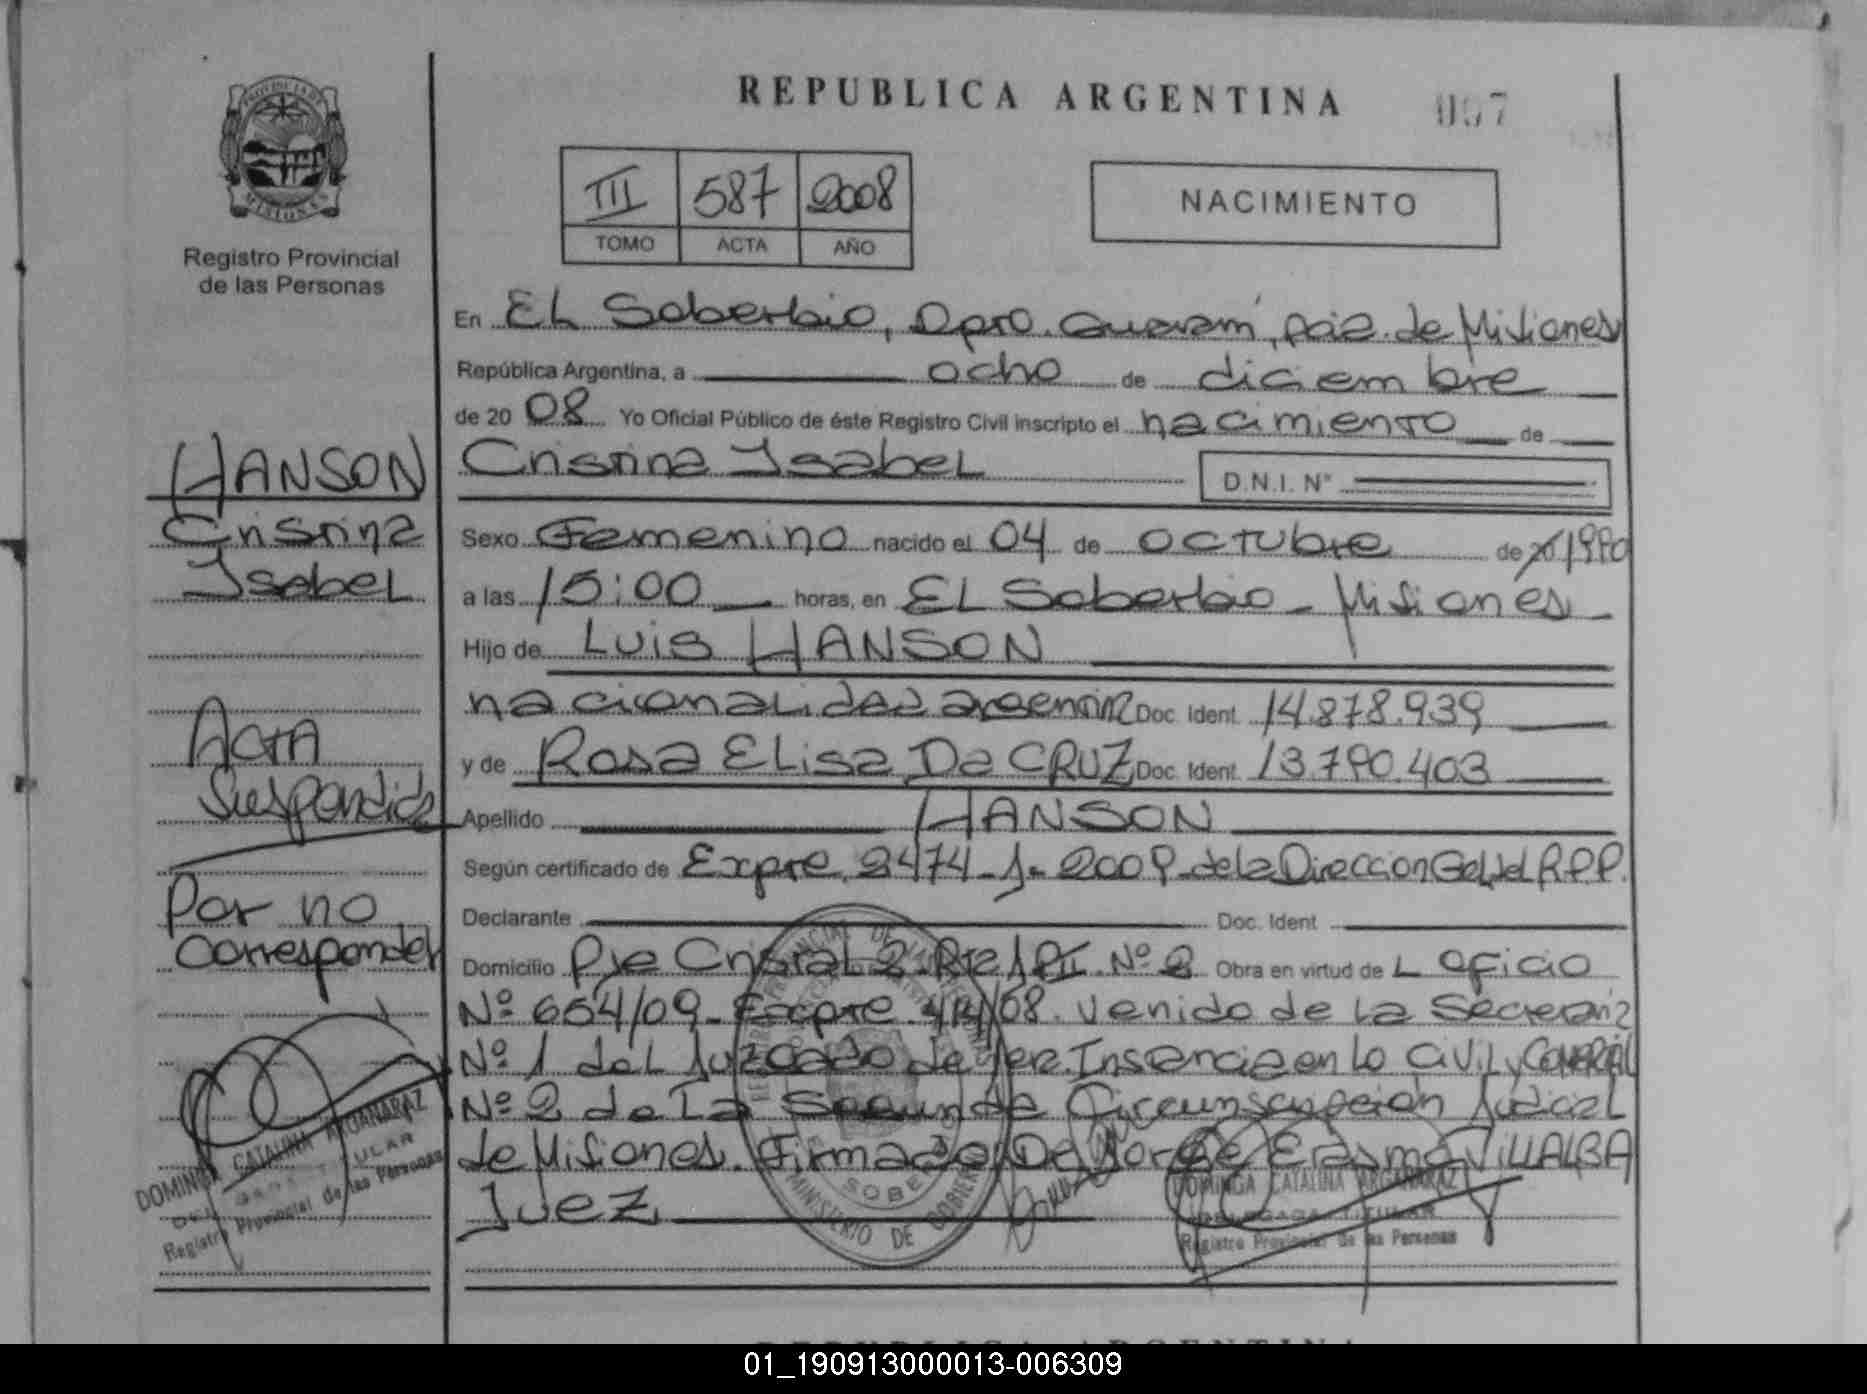 REPUBLICA ARGENTINA
097
PROVINCIA DE
MISIONES
Registro Provincial
de las Personas
III 587 2008
TOMO ACTA AÑO
NACIMIENTO
En EL Soberbio, Dpto. Guaraní, pcia. de Misiones
República Argentina, a ocho de diciembre
de 20 08 Yo Oficial Público de éste Registro Civil inscripto el nacimiento de
Cristina Isabel D.N.I. N°
Sexo Femenino nacido el 04 de octubre de 20 1990
a las 15:00 horas, en EL Soberbio - Misiones
Hijo de Luis HANSON
nacionalidad argentina Doc. Ident. 14.878.939
y de Rosa Elisa Da CRUZ Doc. Ident. 13.790.403
Apellido HANSON
Según certificado de Expte. 2474-J-2009-de la Dirección Gel. del R.P.P.
Declarante Doc. Ident
Domicilio Pje Cristal 2 Obra en virtud de L oficio
Nº 654/09- Expte. 414/08. Venido de la Secretaria
Nº 1 del Juzgado de 1era. Instancia en lo Civil y COMERCIAL
Nº 2 de La Segunda Circunscripción Judicial
de Misiones. Firmado: De Jorge Erasmo VILLALBA
Juez
HANSON
Cristina
Isabel
ACTA
Suspendida
Por no
Corresponder
DOMINGA CATALINA ARGANARAZ
DELEGADA TITULAR
Registro Provincial de las Personas
MINISTERIO DE GOBIERNO
DOMINGA CATALINA ARGANARAZ
DELEGADA TITULAR
Registro Provincial de las Personas
REPUBLICA ARGENTINA
01_190913000013-006309